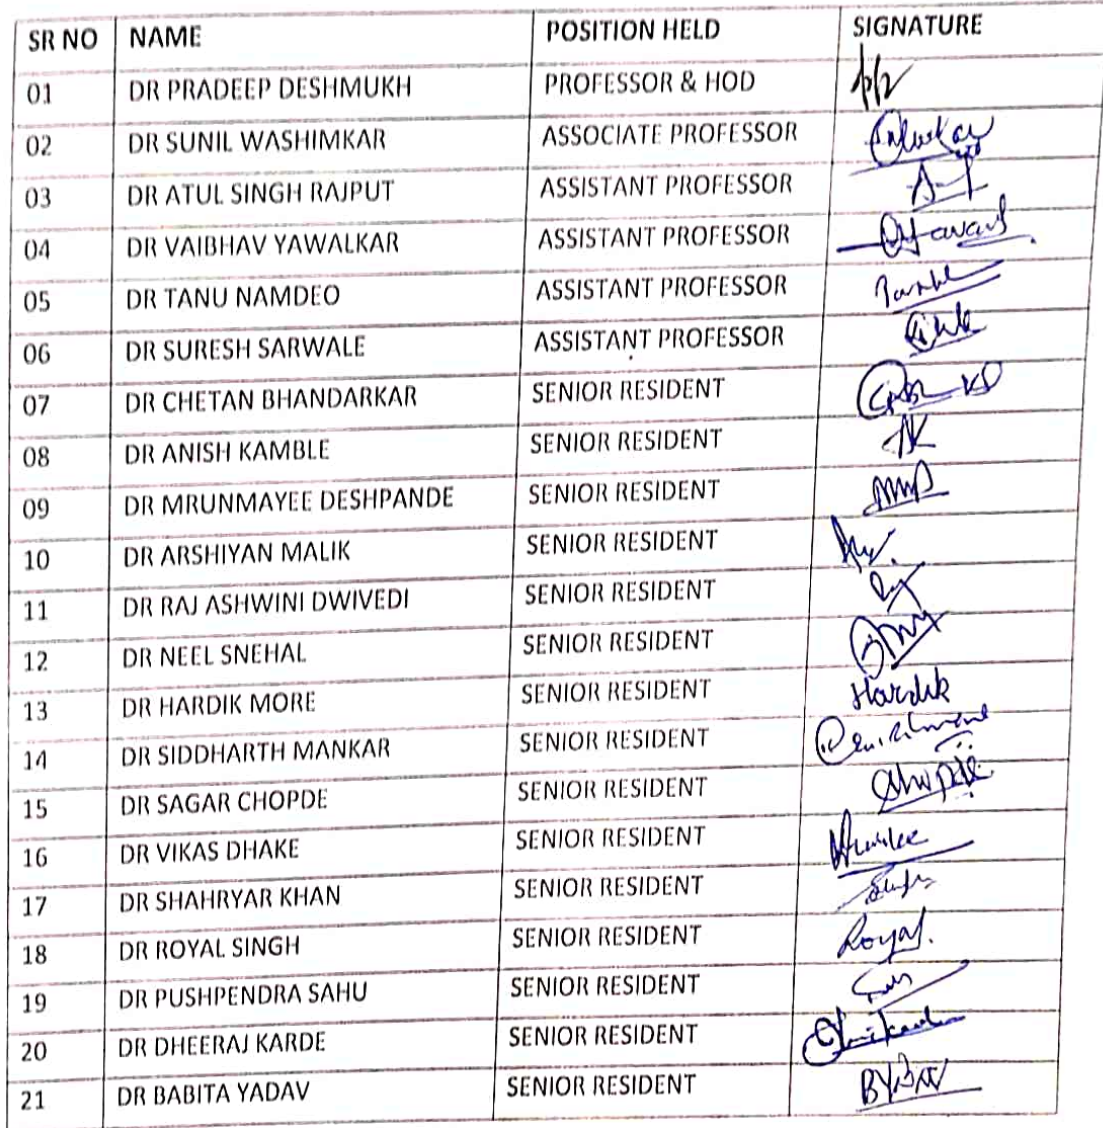 SR NO NAME POSITION HELD SIGNATURE
01 DR PRADEEP DESHMUKH PROFESSOR & HOD
02 DR SUNIL WASHIMKAR ASSOCIATE PROFESSOR
03 DR ATUL SINGH RAJPUT ASSISTANT PROFESSOR
04 DR VAIBHAV YAWALKAR ASSISTANT PROFESSOR
05 DR TANU NAMDEO ASSISTANT PROFESSOR
06 DR SURESH SARWALE ASSISTANT PROFESSOR
07 DR CHETAN BHANDARKAR SENIOR RESIDENT
08 DR ANISH KAMBLE SENIOR RESIDENT AK
09 DR MRUNMAYEE DESHPANDE SENIOR RESIDENT
10 DR ARSHIYAN MALIK SENIOR RESIDENT
11 DR RAJ ASHWINI DWIVEDI SENIOR RESIDENT
12 DR NEEL SNEHAL SENIOR RESIDENT
13 DR HARDIK MORE SENIOR RESIDENT Hardik
14 DR SIDDHARTH MANKAR SENIOR RESIDENT
15 DR SAGAR CHOPDE SENIOR RESIDENT
16 DR VIKAS DHAKE SENIOR RESIDENT
17 DR SHAHRYAR KHAN SENIOR RESIDENT
18 DR ROYAL SINGH SENIOR RESIDENT Royal.
19 DR PUSHPENDRA SAHU SENIOR RESIDENT
20 DR DHEERAJ KARDE SENIOR RESIDENT
21 DR BABITA YADAV SENIOR RESIDENT